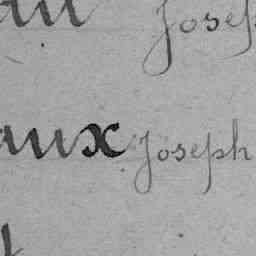 au Josep
aux Joseph